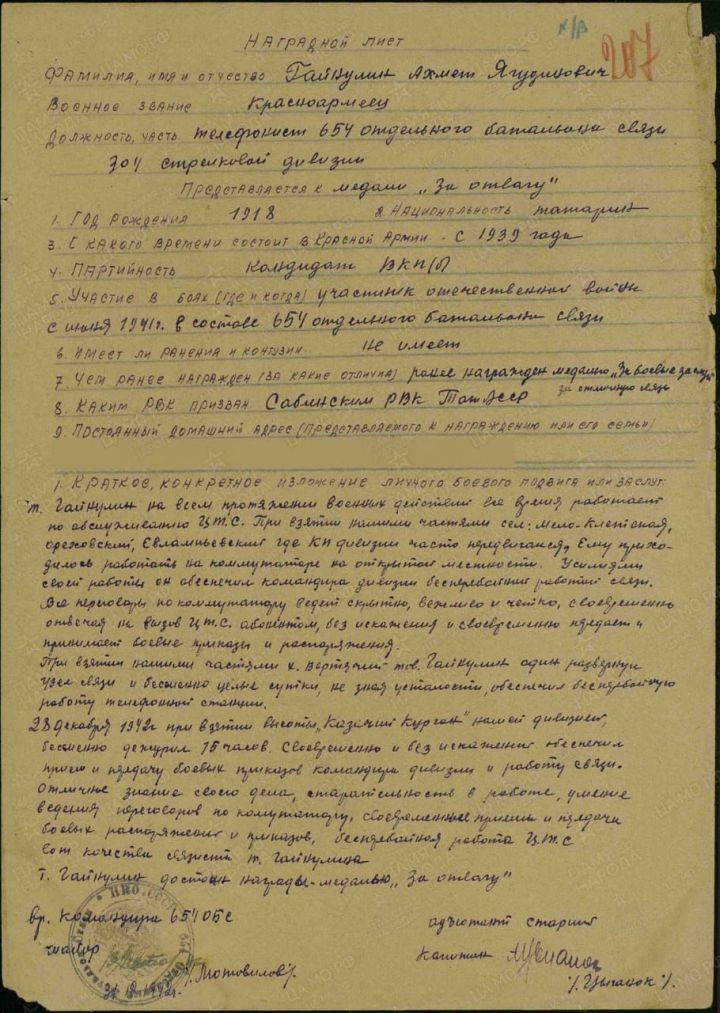 Наградной лист
207
Фамилия, имя и отчество Гайнулин Ахмет Ягудинович
Военное звание Красноармеец
Должность, часть телефонист 654 отдельного батальона связи
304 стрелковой дивизии
Представляется к медали „За отвагу"
1. Год рождения 1918 2. Национальность татарин
3. С какого времени состоит в Красной Армии - с 1939 года
4. Партийность Кандидат ВКП(б)
5. Участие в боях (где и когда) участник отечественной войны
с июня 1941г. в составе 654 отдельного батальона связи
6. Имеет ли ранения и контузии не имеет
7. Чем ранее награжден (за какие отличия) ранее награжден медалью „За боевые заслуги"
за отличную связь
8. Каким РВК призван Сабинским РВК ТатАССР
9. Постоянный домашний адрес (представляемого к награждению или его семьи)
1. Краткое, конкретное изложение личного боевого подвига или заслуг:
т. Гайнулин на всем протяжении военных действий все время работает
по обслуживанию Ц.Т.С. При взятии нашими частями сел: Мело-Клетская,
Ореховский, Евлампьевский где КП дивизии часто передвигался, Ему прихо-
дилось работать на коммутаторе на открытой местности. Усилиями
своей работы он обеспечил командира дивизии бесперебойной работой связи.
Все переговоры по коммутатору ведет скрытно, вежливо и четко, своевременно
отвечая на вызов Ц.Т.С. абонентом, без искажения и своевременно передает и
принимает боевые приказы и распоряжения.
При взятии нашими частями х. Вертячий тов. Гайнулин один развернул
узел связи и бессменно целые сутки, не зная усталости, обеспечил бесперебойную
работу телефонной станции.
28 декабря 1942г при взятии высоты „Казачий Курган" нашей дивизией,
бессменно дежурил 15 часов. Своевременно и без искажений обеспечил
прием и передачу боевых приказов командира дивизии и работу связи.
Отличное знание своего дела, старательность в работе, умение
ведения переговоров по коммутатору, своевременные приемы и передачи
боевых распоряжений и приказов, бесперебойная работа Ц.Т.С
вот качества связиста т. Гайнулина
Т. Гайнулин достоин награды-медалью „За отвагу"
вр. командира 654 ОБС
майор /Мотовилов/.
31.12.1942г.
адъютант старший
капитан
/Цыганок/.